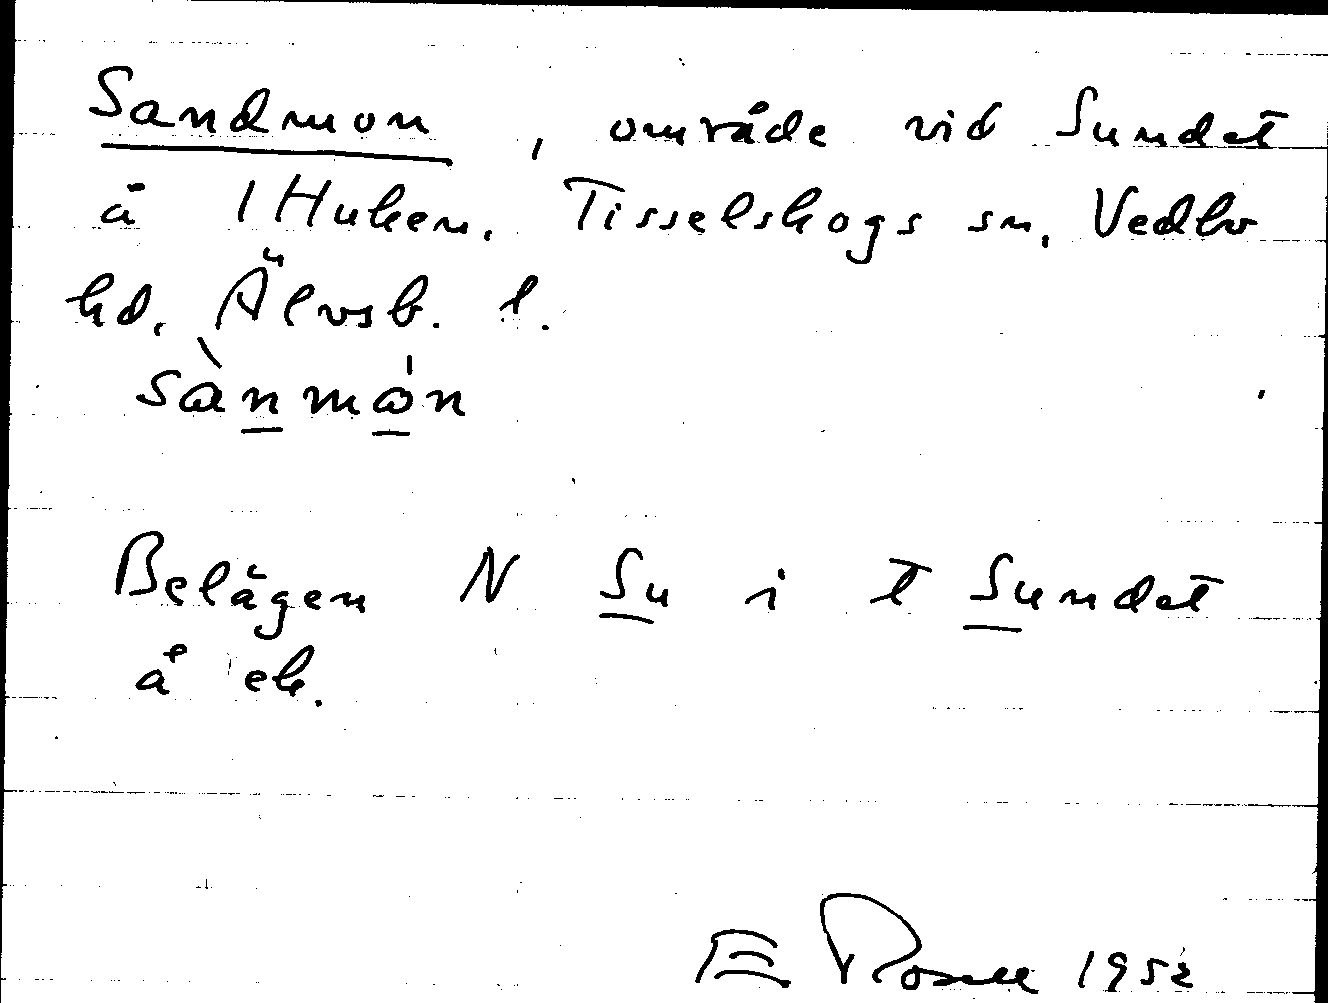 Sandmon, område vid Sundet
å 1 Huken. Tisselskogs sn, Vedbo
hd, Älvsb. l.
sànmón
Belägen N Su i t Sundet
å ek.
E Rosell 1952